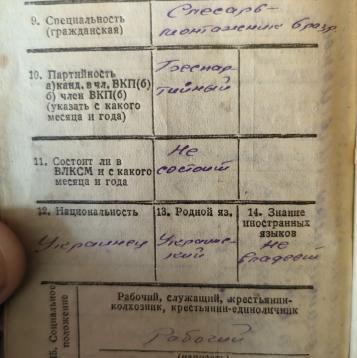 9. Специальность
(гражданская)
Слесарь-
монтажник
10. Партийность
а) канд. в чл. ВКП(б)
б) член ВКП(б)
(указать с какого
месяца и года)
Беспар
тийный
11. Состоит ли в
ВЛКСМ и с какого
месяца и года
Не
состоит
12. Национальность
Украинец
13. Родной яз.
Украинс-
кий
14. Знание
иностранных
языков
Не
владеет
15. Социальное
положение
Рабочий, служащий, крестьянин-
колхозник, крестьянин-единоличник
Рабочий